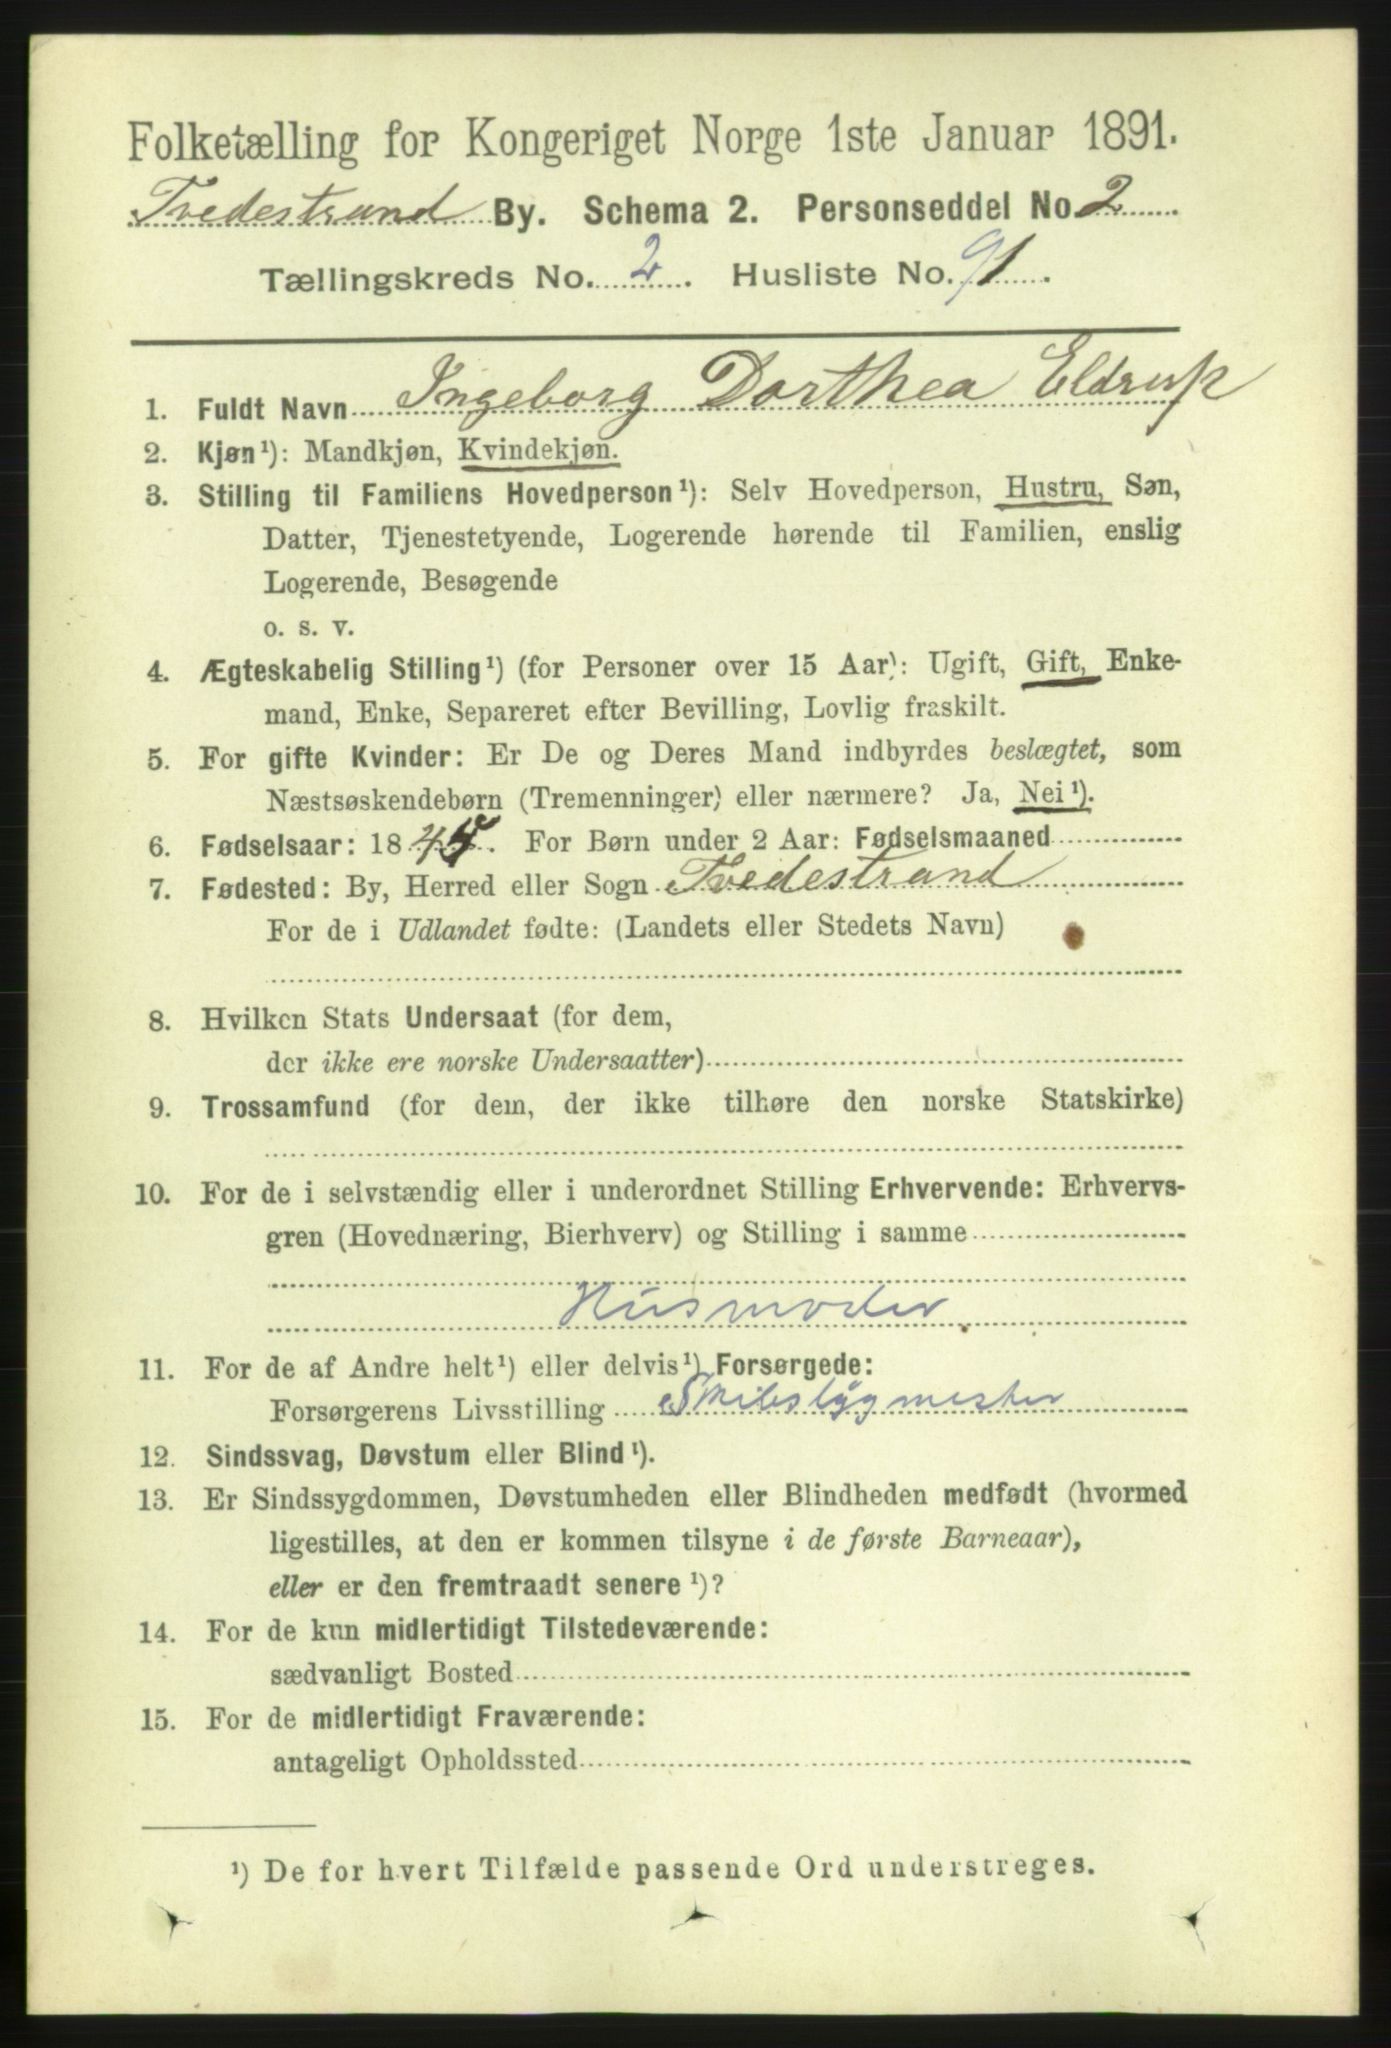 Folketælling for Kongeriget Norge 1ste Januar 1891.
Tvedestrand By. Schema 2. Personseddel No 2
Tællingskreds No. 2. Husliste No. 91.
1. Fuldt Navn Ingeborg Dorthea Eldrup
2. Kjøn¹): Mandkjøn, Kvindekjøn.
3. Stilling til Familiens Hovedperson¹): Selv Hovedperson, Hustru, Søn,
Datter, Tjenestetyende, Logerende hørende til Familien, enslig
Logerende, Besøgende
o. s. v.
4. Ægteskabelig Stilling¹) (for Personer over 15 Aar): Ugift, Gift, Enke-
mand, Enke, Separeret efter Bevilling, Lovlig fraskilt.
5. For gifte Kvinder: Er De og Deres Mand indbyrdes beslægtet, som
Næstsøskendebørn (Tremenninger) eller nærmere? Ja, Nei¹).
6. Fødselsaar: 1845. For Børn under 2 Aar: Fødselsmaaned
7. Fødested: By, Herred eller Sogn Tvedestrand
For de i Udlandet fødte: (Landets eller Stedets Navn)
8. Hvilken Stats Undersaat (for dem,
der ikke ere norske Undersaatter)
9. Trossamfund (for dem, der ikke tilhøre den norske Statskirke)
10. For de i selvstændig eller i underordnet Stilling Erhvervende: Erhvervs-
gren (Hovednæring, Bierhverv) og Stilling i samme
Husmoder
11. For de af Andre helt¹) eller delvis¹) Forsørgede:
Forsørgerens Livsstilling Skibsbygmester
12. Sindssvag, Døvstum eller Blind¹).
13. Er Sindssygdommen, Døvstumheden eller Blindheden medfødt (hvormed
ligestilles, at den er kommen tilsyne i de første Barneaar),
eller er den fremtraadt senere¹)?
14. For de kun midlertidigt Tilstedeværende:
sædvanligt Bosted
15. For de midlertidigt Fraværende:
antageligt Opholdssted
¹) De for hvert Tilfælde passende Ord understreges.